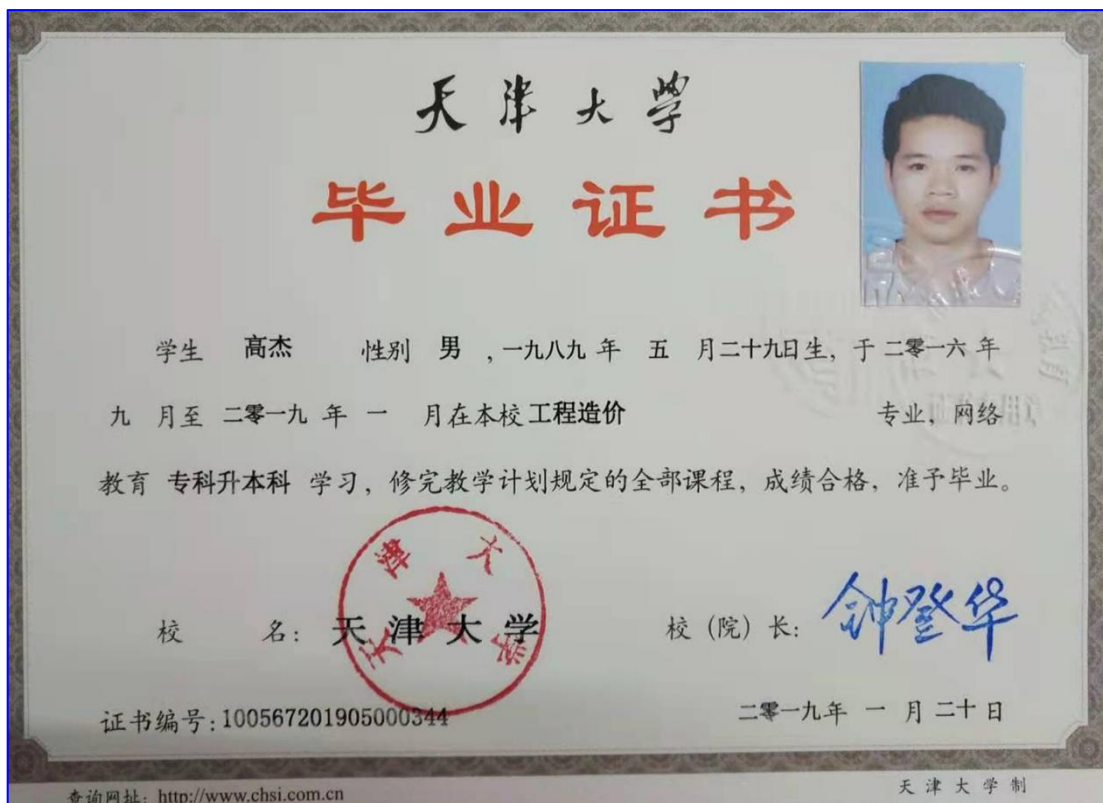 天津大学
毕业证书
学生 高杰 性别 男 ,一九八九年 五 月二十九日生,于二零一六年
九 月至 二零一九 年 一 月在本校工程造价 专业,网络
教育 专科升本科 学习,修完教学计划规定的全部课程,成绩合格,准予毕业。
天津大学
校 名: 天津大学 校(院)长: 钟登华
证书编号:100567201905000344 二零一九年 一 月二十日
查询网址: http://www.chsi.com.cn 天津大学制